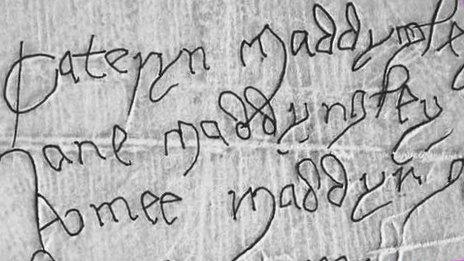 Cateryn maddyngley
Jane maddyngley
Amee maddyng